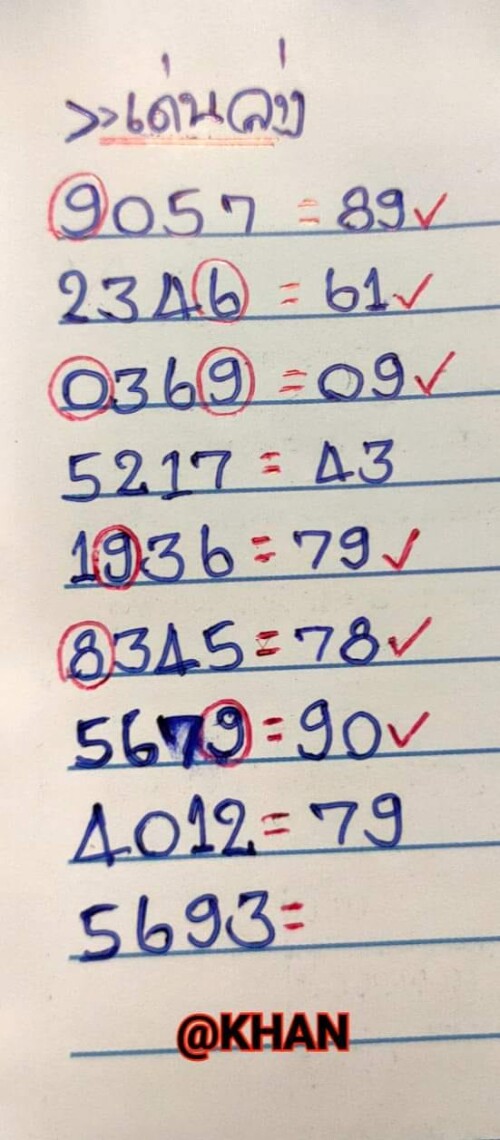 >>เด่นล่าง
9057 = 89✓
2346 = 61✓
0369 = 09✓
5217 = 43
1936 = 79✓
8345 = 78✓
5679 = 90✓
4012 = 79
5693 =
@KHAN